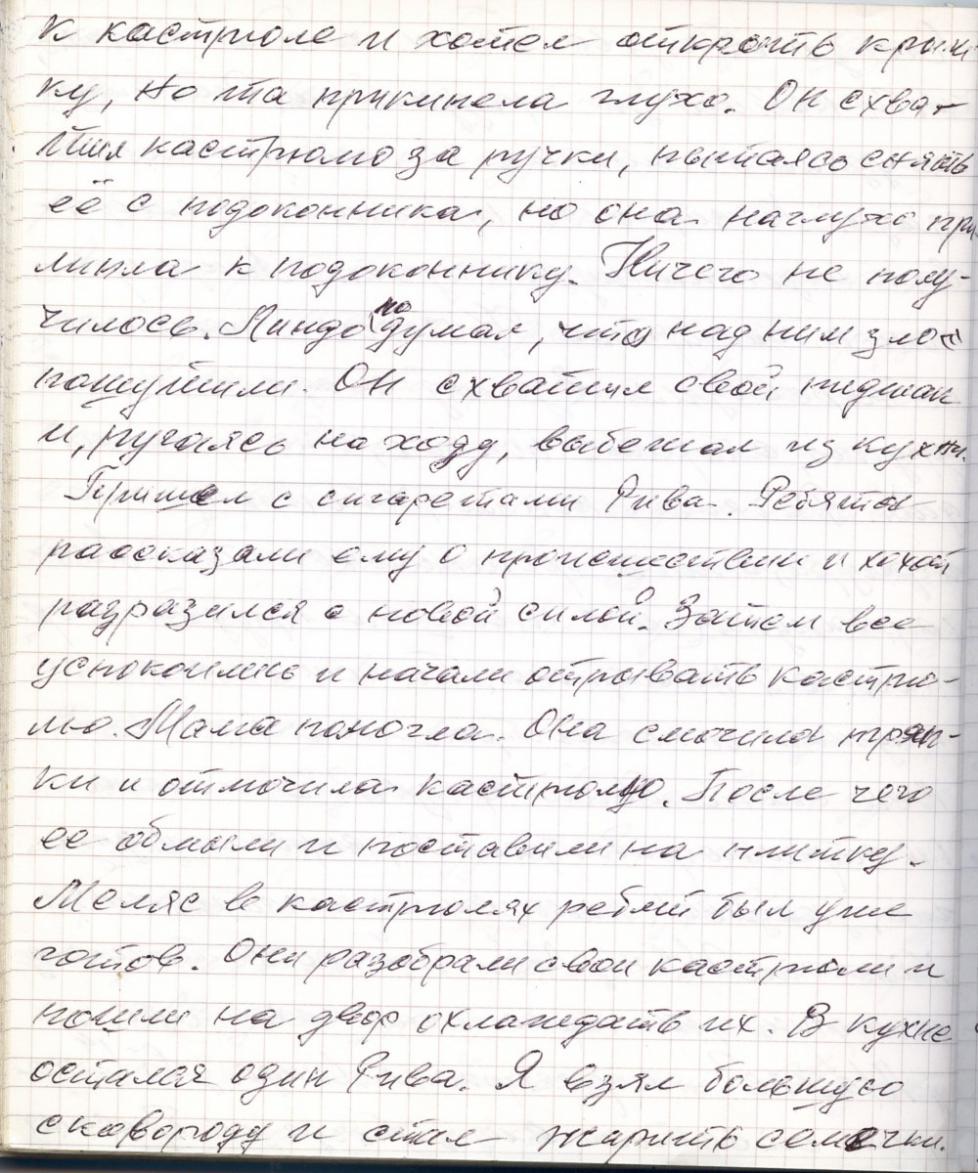 к кастрюле и хотел открыть крыш-
ку, но та прикипела глухо. Он схва-
тил кастрюлю за ручки, пытаясь снять
её с подоконника, но она наглухо при-
липла к подоконнику. Ничего не полу-
чилось. Линдо подумал, что над ним зло
пошутили. Он схватил свой пиджак
и, ругаясь на ходу, выбежал из кухни.
Пришел с сигаретами Рива. Ребята
рассказали ему о происшествии и хохот
разразился с новой силой. Затем все
успокоились и начали отрывать кастрю-
лю. Мама помогла. Она смочила тряп-
ки и отмочила кастрюлю. После чего
ее обмыли и поставили на плитку.
Меляс в кастрюлях ребят был уже
готов. Они разобрали свои кастрюли и
пошли на двор охлаждать их. В кухне
остался один Рива. Я взял большую
сковороду и стал жарить семечки.